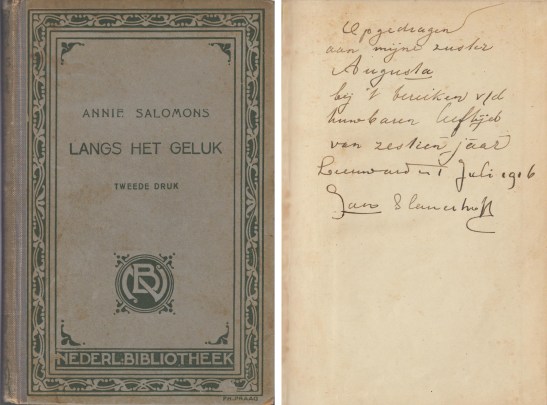 ANNIE SALOMONS
LANGS HET GELUK
TWEEDE DRUK
NEDERL: BIBLIOTHEEK
PH. PRAAG
Opgedragen
aan mijne zuster
Augusta
bij 't bereiken v/d
huwbaren leeftijd
van zestien jaar
Leeuwarden 1 Juli 1916
Jan Slauerhoff